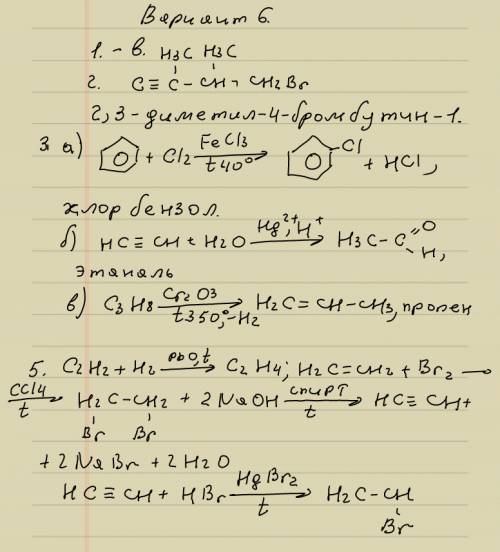 Вариант 6.
1. - в. H3C H3C
2. C ≡ C - CH - CH2Br
2,3-диметил-4-бромбутин-1.
3 а) + Cl2 FeCl3 t 40° → Cl + HCl,
хлорбензол.
б) HC ≡ CH + H2O Hg2+, H+ → H3C - C =O H,
этаналь
в) C3H8 Cr2O3 t 350°, -H2 → H2C = CH - CH3, пропен
5. C2H2 + H2 PbO, t → C2H4; H2C = CH2 + Br2 —
CCl4 t → H2C - CH2 + 2NaOH спирт t → HC ≡ CH +
Br Br
+ 2NaBr + 2H2O
HC ≡ CH + HBr HgBr2 t → H2C - CH
Br